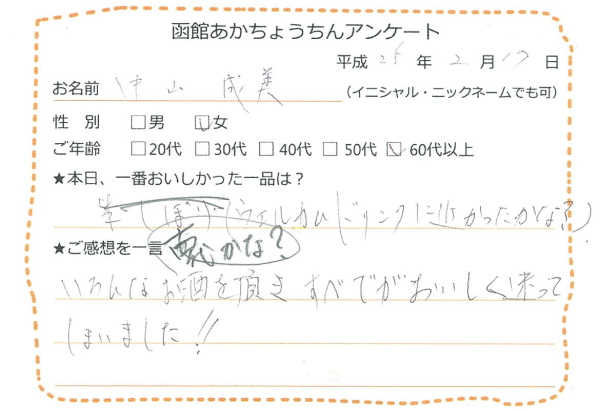 函館あかちょうちんアンケート
平成 25 年 2 月 17 日
お名前 中山 成美 (イニシャル・ニックネームでも可)
性 別 □男 ☑女
ご年齢 □20代 □30代 □40代 □50代 ☑60代以上
★本日、一番おいしかった一品は？
しぼり (ウェルカムドリンクに近かったかな？)
★ご感想を一言 かな？
いろんなお酒を頂き すべてがおいしく迷って
しまいました!!